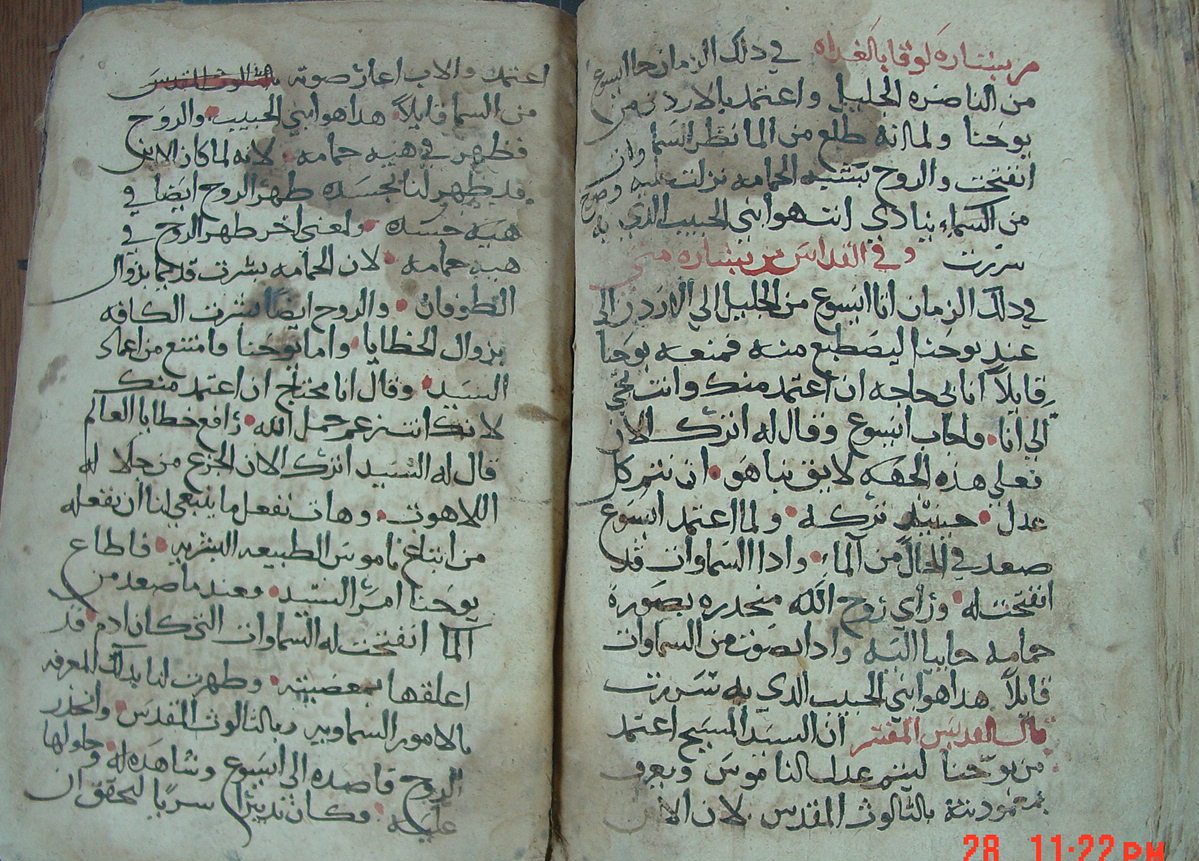 من بشارة لوقا بالغداه في دلك الزمان جا ايسوع
من الناصره الجليل واعتمد بالاردن من
يوحنا ولما انه طلع من الما نظر السما وان
انفتحت والروح بتشبيه الحمامه نزلت عليه وصوت
من السماء ينادي انت هو ابني الحبيب الدي به
سررت وفي القداس من بشاره متى
في دلك الزمان اتا ايسوع من الجليل الي الاردن الي
عند يوحنا ليصطبع منه فمنعه يوحنا
قايلاً انا لي حاجه ان اعتمد منك وانت تجي
الي انا فاجاب ايسوع وقال له اترك الان
فعلي هده الجهه لايق بنا هو ان نتم كل
عدل حينيد تركه ولما اعتمد ايسوع
صعد في الحال من الماء وادا السماوات قد
انفتحت له وراي روح الله منحدره بصورة
حمامه جاييا اليه وادا بصوت من السماوات
قايلاً هدا هو ابني الحبيب الدي به سررت
قال القديس المفسر ان السيد المسيح اعتمد
من يوحنا ليتم عدل الناموس ويعرف
بمعموديته بالتالوت المقدس لان الابن
اعتمد والاب اعلن صوته بالتالوت المقدس
من السما قايلاً هدا هو ابني الحبيب والروح
فظهر في هيه حمامه لانه لما كان الابن
قد ظهر لنا بجسده ظهر الروح ايضا في
هيه جسد ولمعني اخر ظهر الروح في
هيه حمامه لان الحمامه بشرت قديما بزوال
الطوفان والروح ايضا بشرت الكافه
بزوال الخطايا واما يوحنا وامتنع من اعماد
السيد وقال انا محتاج ان اعتمد منك
لانك انت حمل الله رافع خطايا العالم
قال له السيد اترك الان الجزع من جلاله
اللاهوت وهات نفعل ما ينبغي لنا ان نفعله
من ناموس الطبيعه البشريه فاطاع
يوحنا امر السيد وعند ما صعد من
الما انفتحت له السماوات التي كان ادم قد
اغلقها بمعصيته وظهرت لنا بدلك المعرفه
بالامور السماويه وبالتالوت المقدس وانحدر
الروح قاصده الي ايسوع وشاهده له وحلولها
عليه وكان تدبيرا سريا ليحقق ان
28 11:22 PM